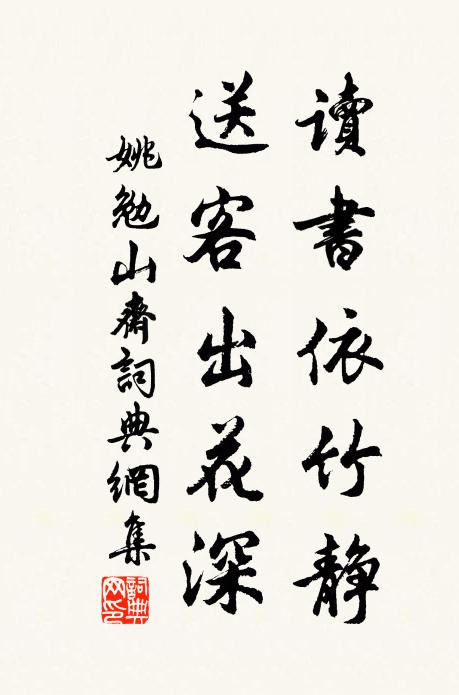 讀書依竹静
送客出花深
姚勉山齋詞典網集
詞典網印